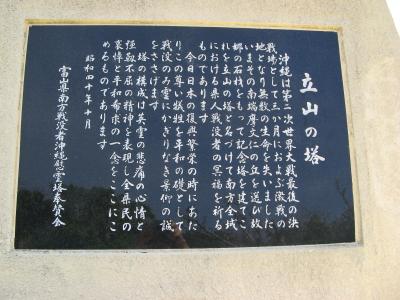 立山の塔
沖縄は第二次世界大戦最後の決
戦場として三か月におよぶ激戦の
地となり無数の生命を失いました
いまその南端摩文仁の丘を選び故
郷の石材をもって記念塔を建てこ
れを立山の塔と名づけて南方全域
における県人戦没者の冥福を祈る
ものであります
今日日本の復興繁栄の時にあた
りこの尊い犠牲を平和の礎として
戦没のみ霊にかぎりなき景仰の誠
をささげます
塔の構成は英霊の悲痛の心情と
強靱不屈の精神を表現し全県民の
哀悼と平和希求の一念をここにこ
めるものであります
昭和四十年十月
富山県南方戦没者沖縄慰霊塔奉賛会